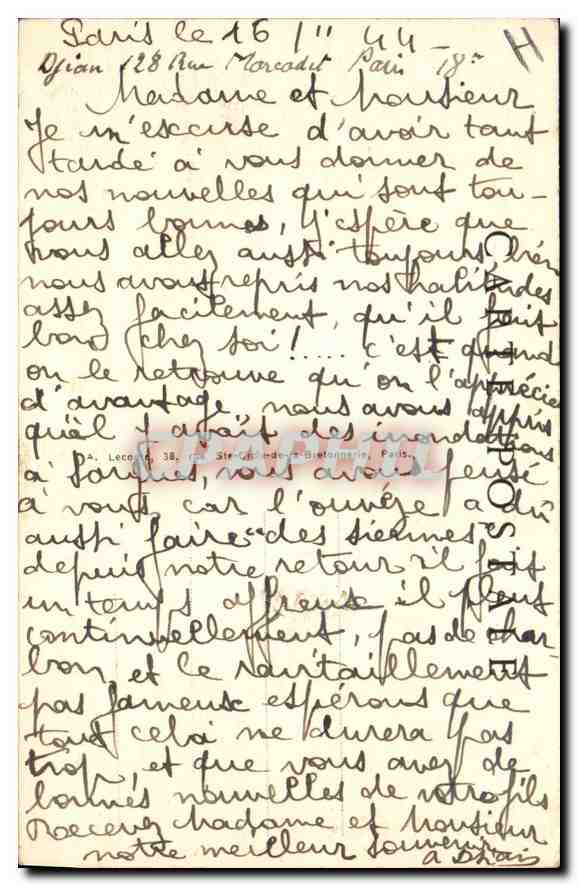 Paris le 16 / 11 44
Djian 128 Rue Marcadet Paris 18e
H
Madame et Monsieur
Je m'excuse d'avoir tant
tardé à vous donner de
nos nouvelles qui sont tou-
jours bonnes, j'espère que
vous allez aussi toujours bien
nous avons repris nos habitudes
assez facilement, qu'il fait
bon chez soi! .... c'est quand
on le retrouve qu'on l'apprécie
d'avantage, nous avons appris
qu'il y avait des inondations
à Sorgues, nous avons pensé
à vous car l'ouvéze a dû
aussi faire "des siennes"
depuis notre retour il fait
un temps affreux il pleut
continuellement, pas de char-
bon et le ravitaillement
pas fameux espérons que
tout celà ne durera pas
trop, et que vous avez de
bonnes nouvelles de votre fils
Recevez Madame et Monsieur
notre meilleur souvenir
CARTE POSTALE
A. Leconte, 38, rue Ste-Croix-de-la-Bretonnerie, Paris.
CPAPHIL